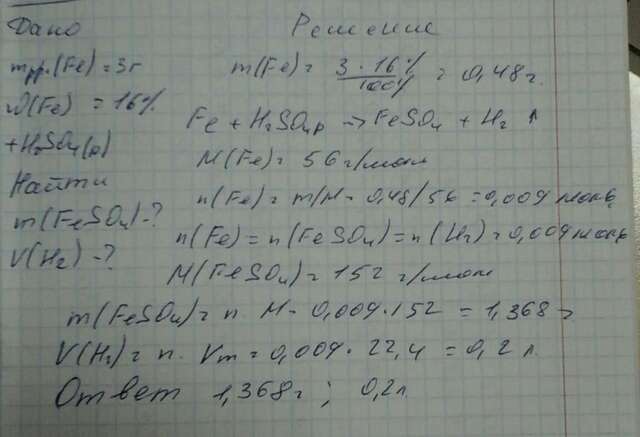 Дано
Решение
mрр.(Fe) = 3г
ω(Fe) = 16%
+H₂SO₄(р)
Найти
m(FeSO₄)-?
V(H₂)-?
m(Fe) = 3·16% / 100% = 0,48г.
Fe + H₂SO₄р → FeSO₄ + H₂↑
M(Fe) = 56 г/моль
n(Fe) = m/M = 0,48/56 = 0,009 моль
n(Fe) = n(FeSO₄) = n(H₂) = 0,009 моль
M(FeSO₄) = 152 г/моль
m(FeSO₄) = n·M = 0,009·152 = 1,368 г
V(H₂) = n·Vm = 0,009·22,4 = 0,2 л.
Ответ 1,368г; 0,2л.